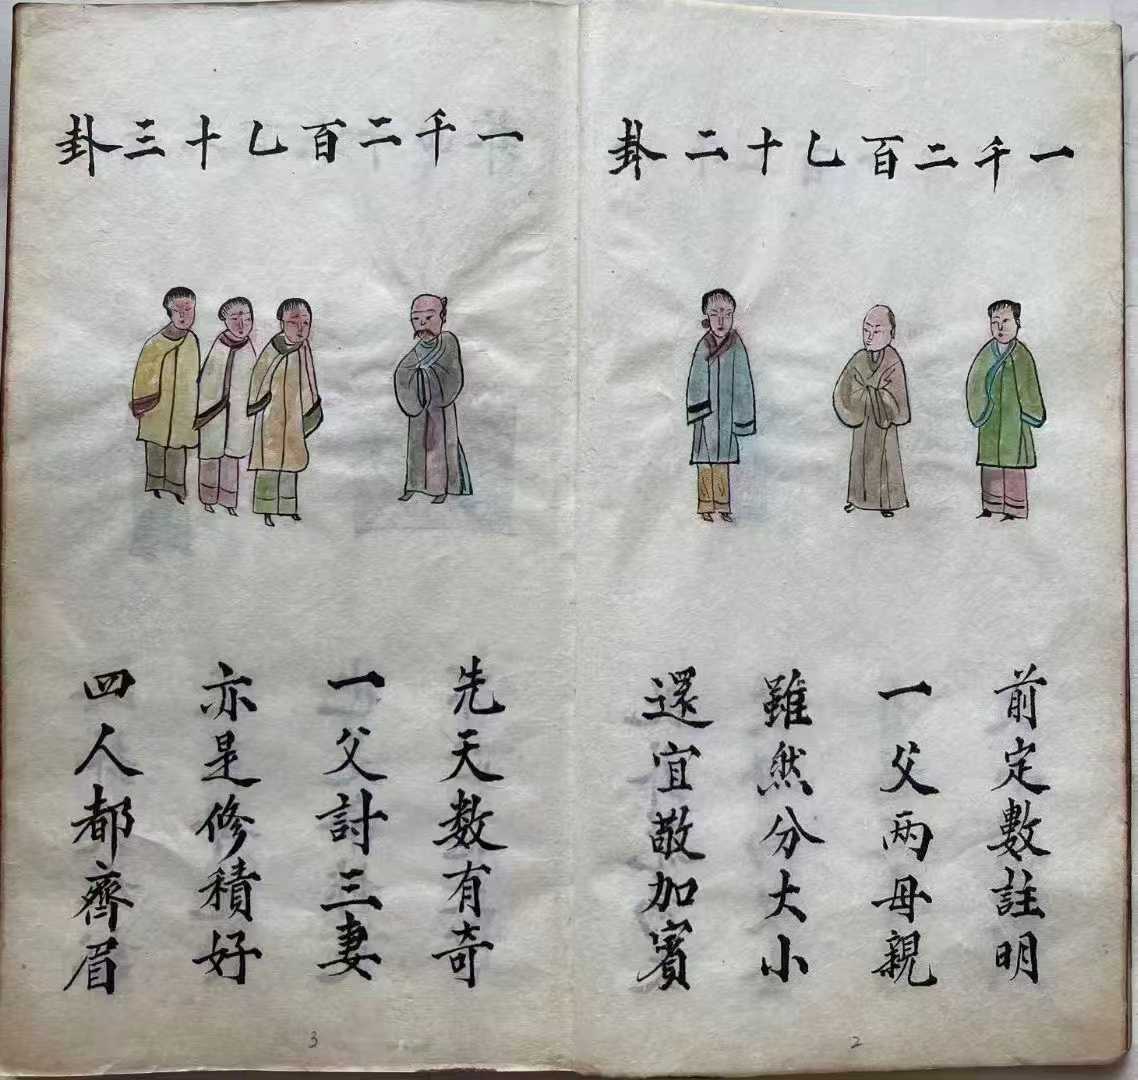 一千二百乙十二卦
前定數註明
一父两母親
雖然分大小
還宜敬加賓
2
一千二百乙十三卦
先天数有奇
一父討三妻
亦是修積好
四人都齊眉
3